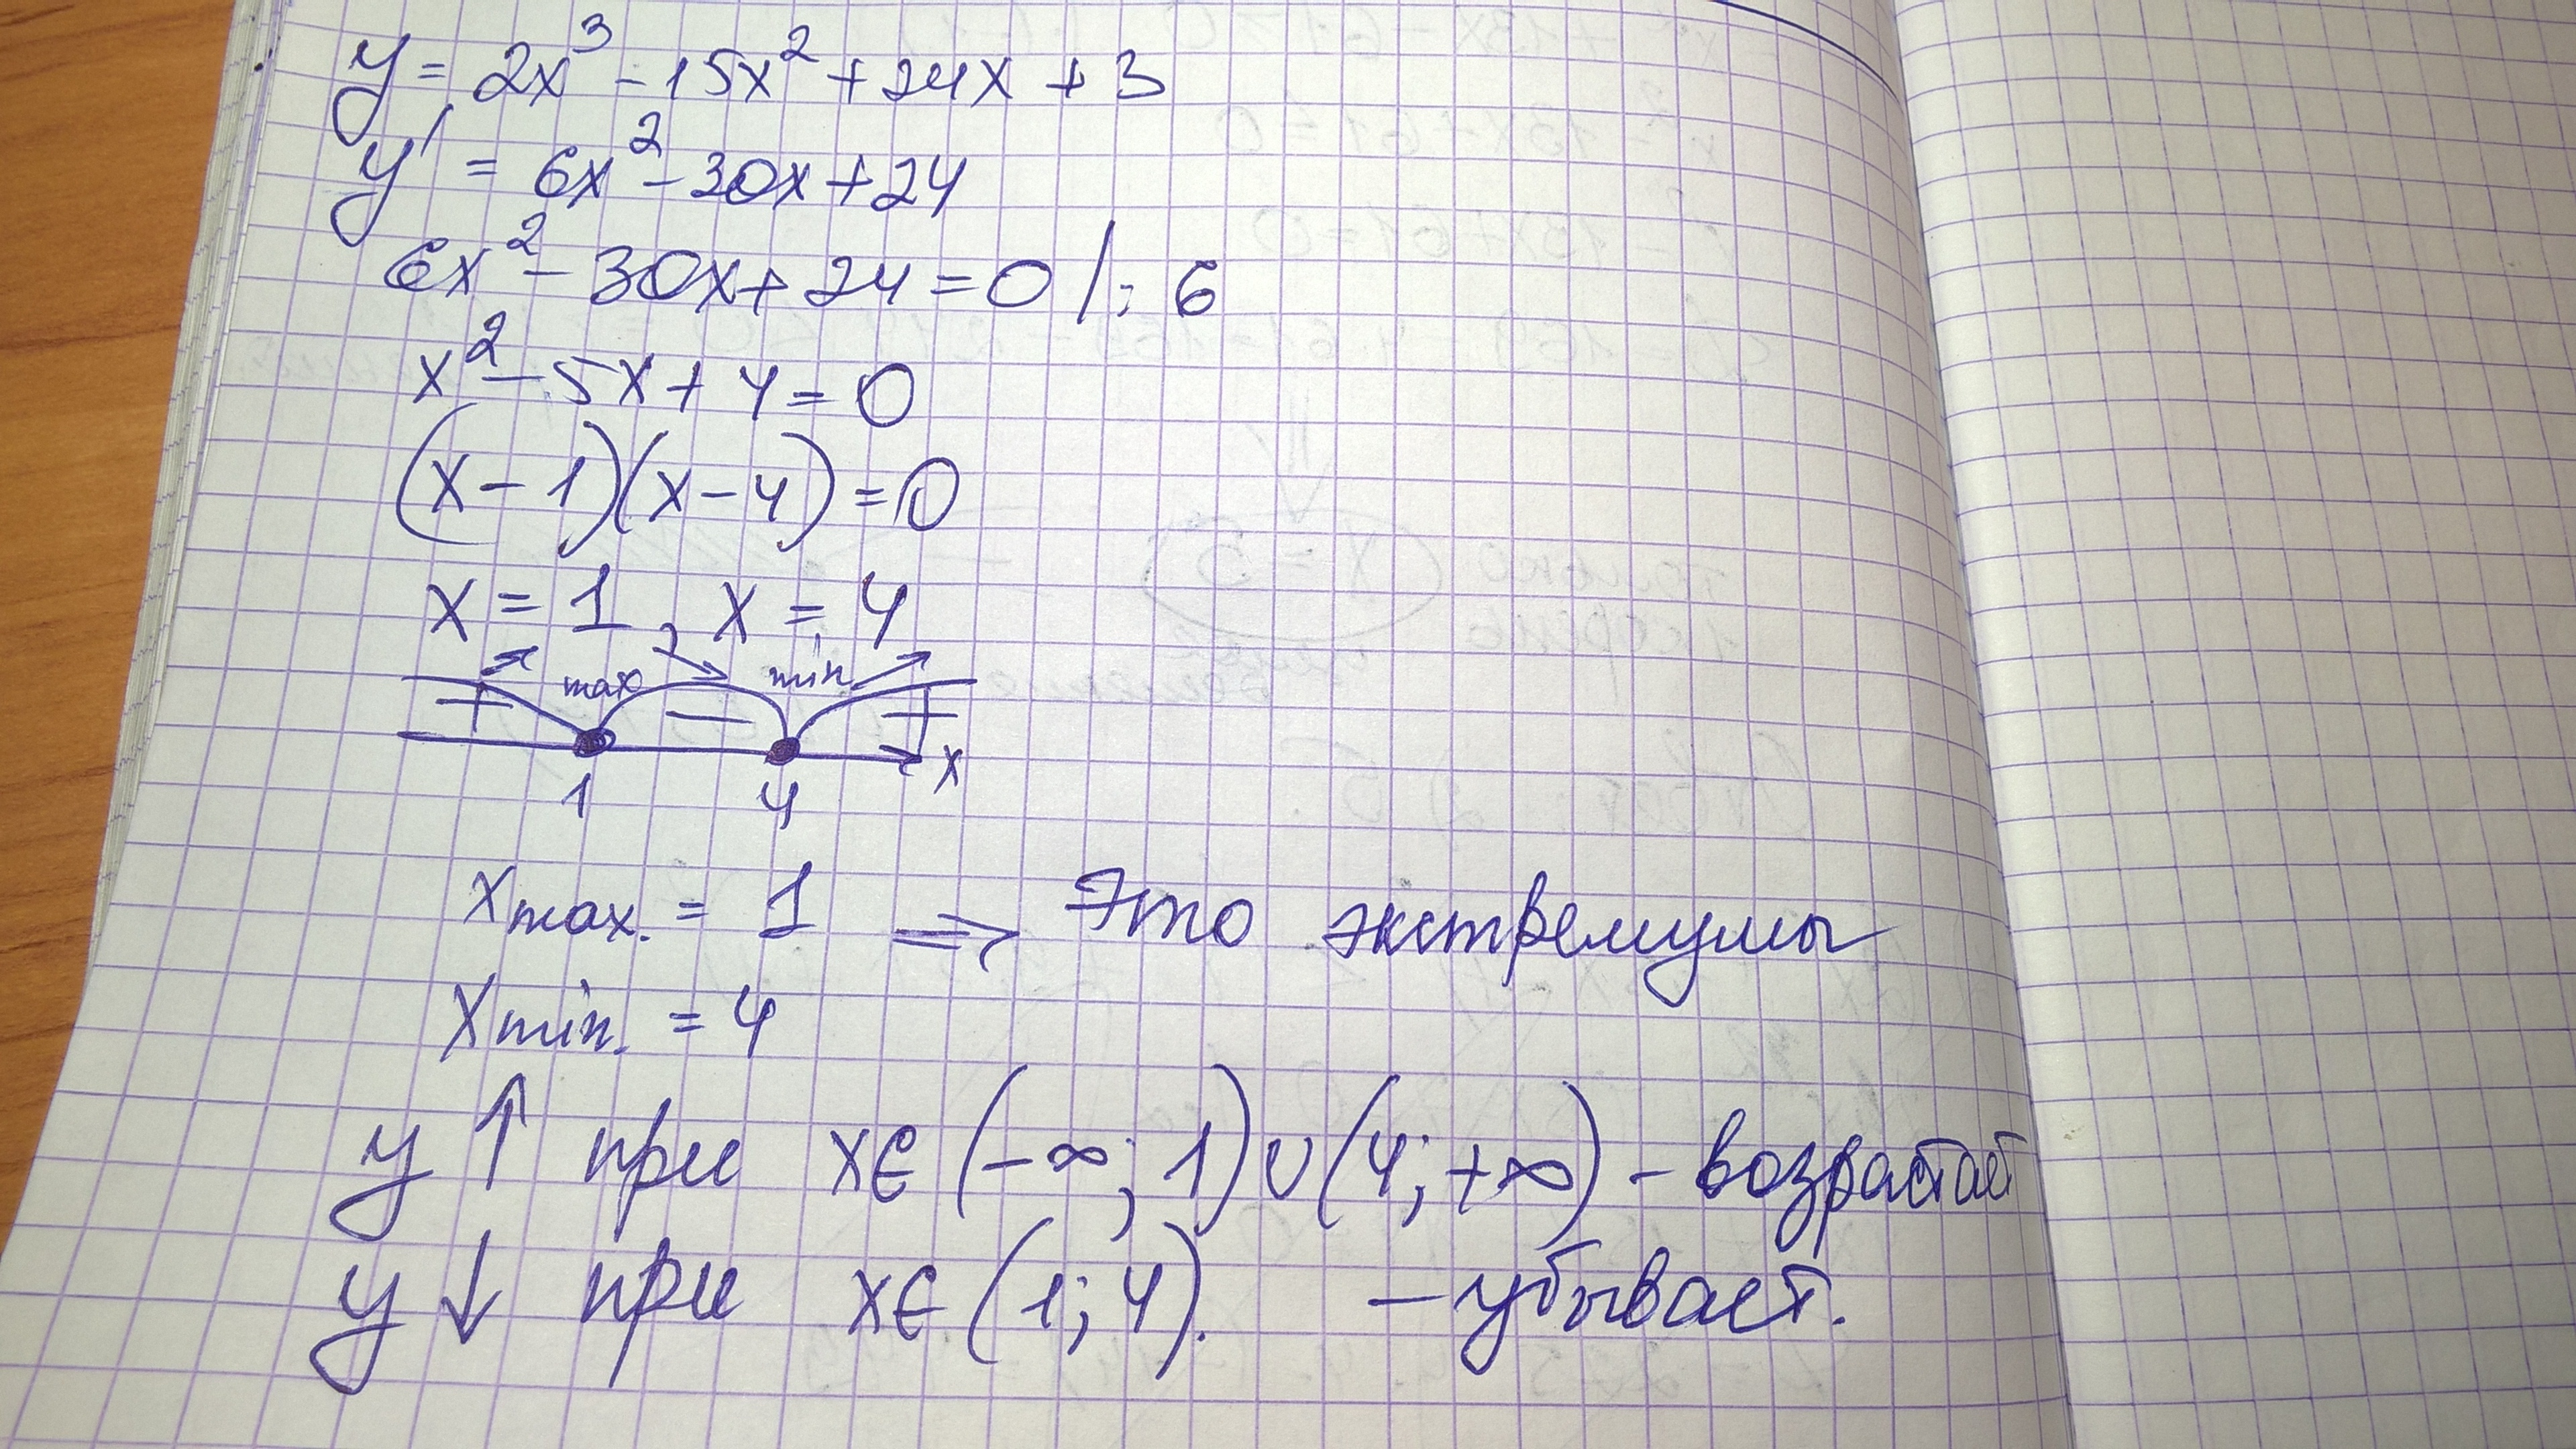 y = 2x³ - 15x² + 24x + 3
y' = 6x² - 30x + 24
6x² - 30x + 24 = 0 / : 6
x² - 5x + 4 = 0
(x - 1)(x - 4) = 0
x = 1, x = 4
max min
+ - +
1 4 x
xmax. = 1 ⇒ Это экстремумы
xmin. = 4
y ↑ при x∈(-∞; 1)∪(4; +∞) - возрастает
y ↓ при x∈(1; 4). - убывает.